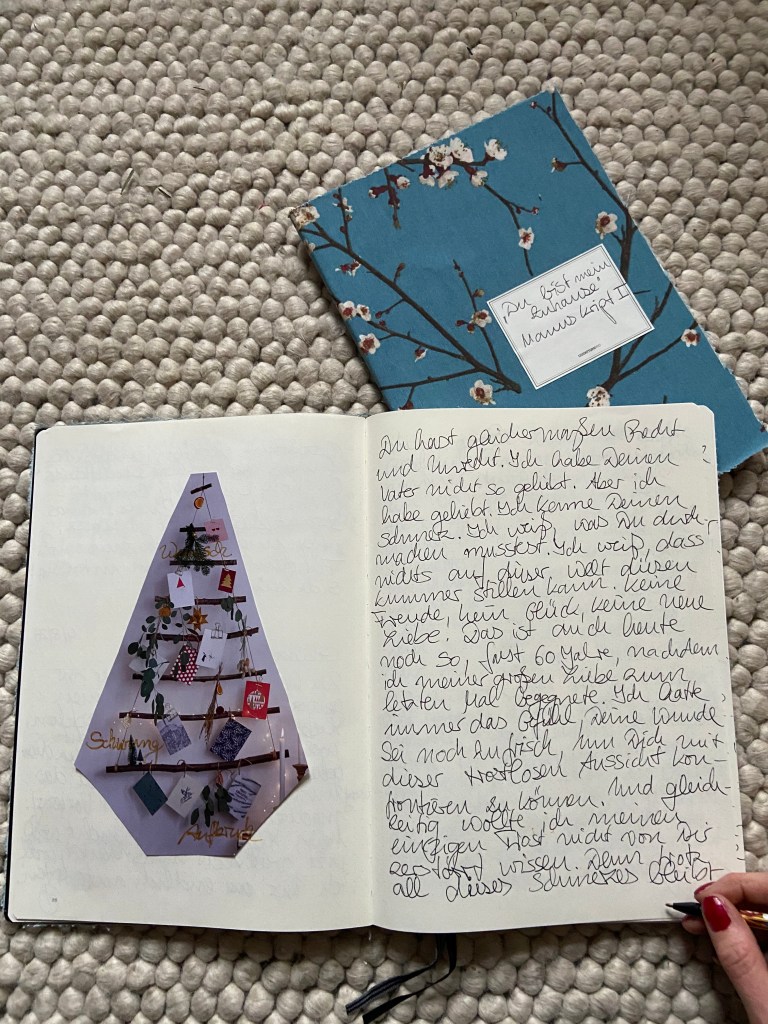 „Du bist mein
Zuhause“
Manuskript II
Wunsch
Schwung
Aufbruch
Du hast gleichermaßen Recht
und Unrecht. Ich habe Deinen
Vater nicht so geliebt. Aber ich
habe geliebt. Ich kenne Deinen
Schmerz. Ich weiß, was Du durch-
machen musstest. Ich weiß, dass
nichts auf dieser Welt diesen
Kummer stillen kann. Keine
Freude, kein Glück, keine neue
Liebe. Das ist auch heute
noch so, fast 60 Jahre, nachdem
ich meiner großen Liebe zum
letzten Mal begegnete. Ich hatte
immer das Gefühl, Deine Wunde
sei noch zu frisch, um Dich mit
dieser trostlosen Aussicht kon-
frontieren zu können. Und gleich-
zeitig wollte ich meinen
einzigen Trost nicht von Dir
zerstört wissen. Denn trotz
all dieses Schmerzes bleibt